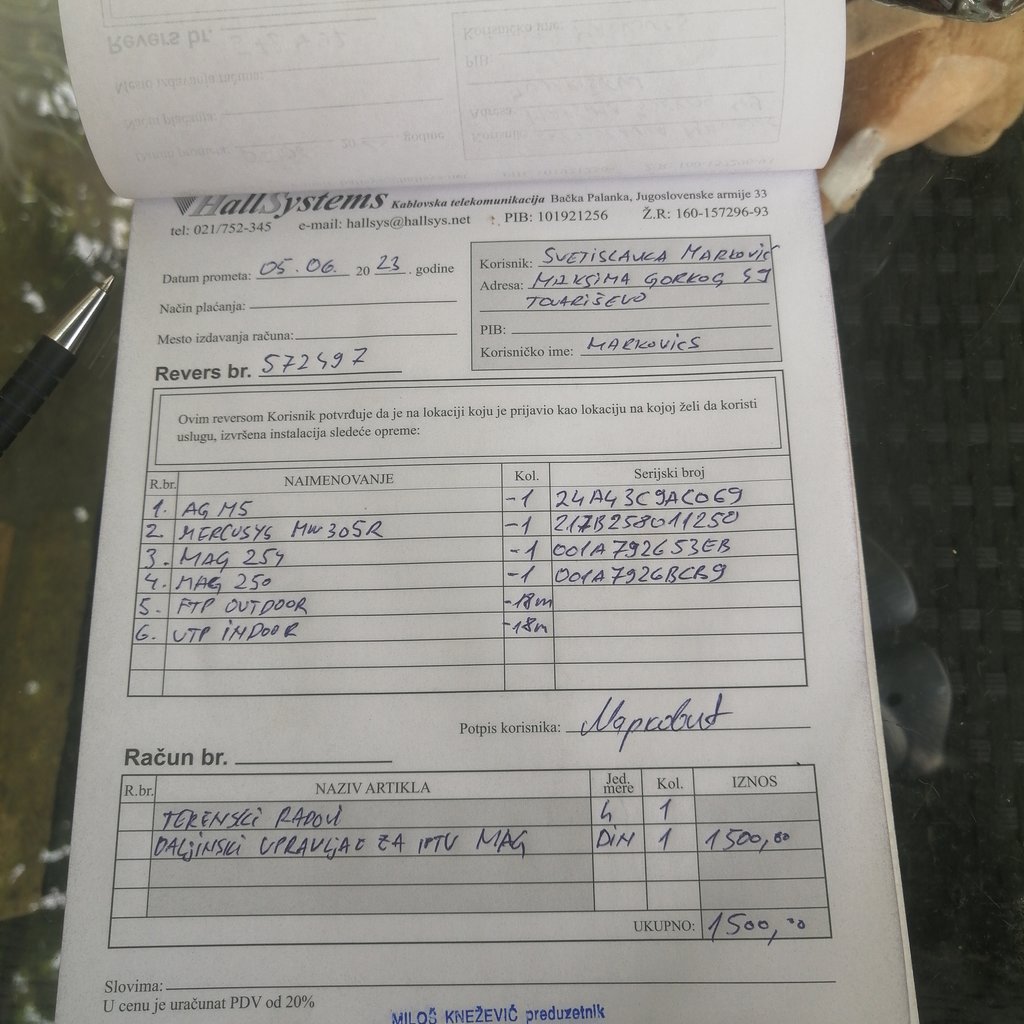 HallSystems Kablovska telekomunikacija Bačka Palanka, Jugoslovenske armije 33
tel: 021/752-345 e-mail: hallsys@hallsys.net PIB: 101921256 Ž.R: 160-157296-93
Datum prometa: 05.06. 2023. godine
Način plaćanja:
Mesto izdavanja računa:
Revers br. 572497
Korisnik: SVETISLAVKA MARKOVIĆ
Adresa: MAKSIMA GORKOG 49
TOVARIŠEVO
PIB:
Korisničko ime: MARKOVICS
Ovim reversom Korisnik potvrđuje da je na lokaciji koju je prijavio kao lokaciju na kojoj želi da koristi
uslugu, izvršena instalacija sledeće opreme:
R.br. NAIMENOVANJE Kol. Serijski broj
1. AG M5 -1 24A43C9AC069
2. MERCUSYS MW305R -1 217B258011250
3. MAG 254 -1 001A792653EB
4. MAG 250 -1 001A7926BCB9
5. FTP OUTDOOR -18m
6. UTP INDOOR -18m
Potpis korisnika: Марковић
Račun br.
R.br. NAZIV ARTIKLA Jed. mere Kol. IZNOS
TERENSKI RADOVI h 1
DALJINSKI UPRAVLJAČ ZA IPTV MAG DIN 1 1500,00
UKUPNO: 1500,00
Slovima:
U cenu je uračunat PDV od 20%
MILOŠ KNEŽEVIĆ preduzetnik